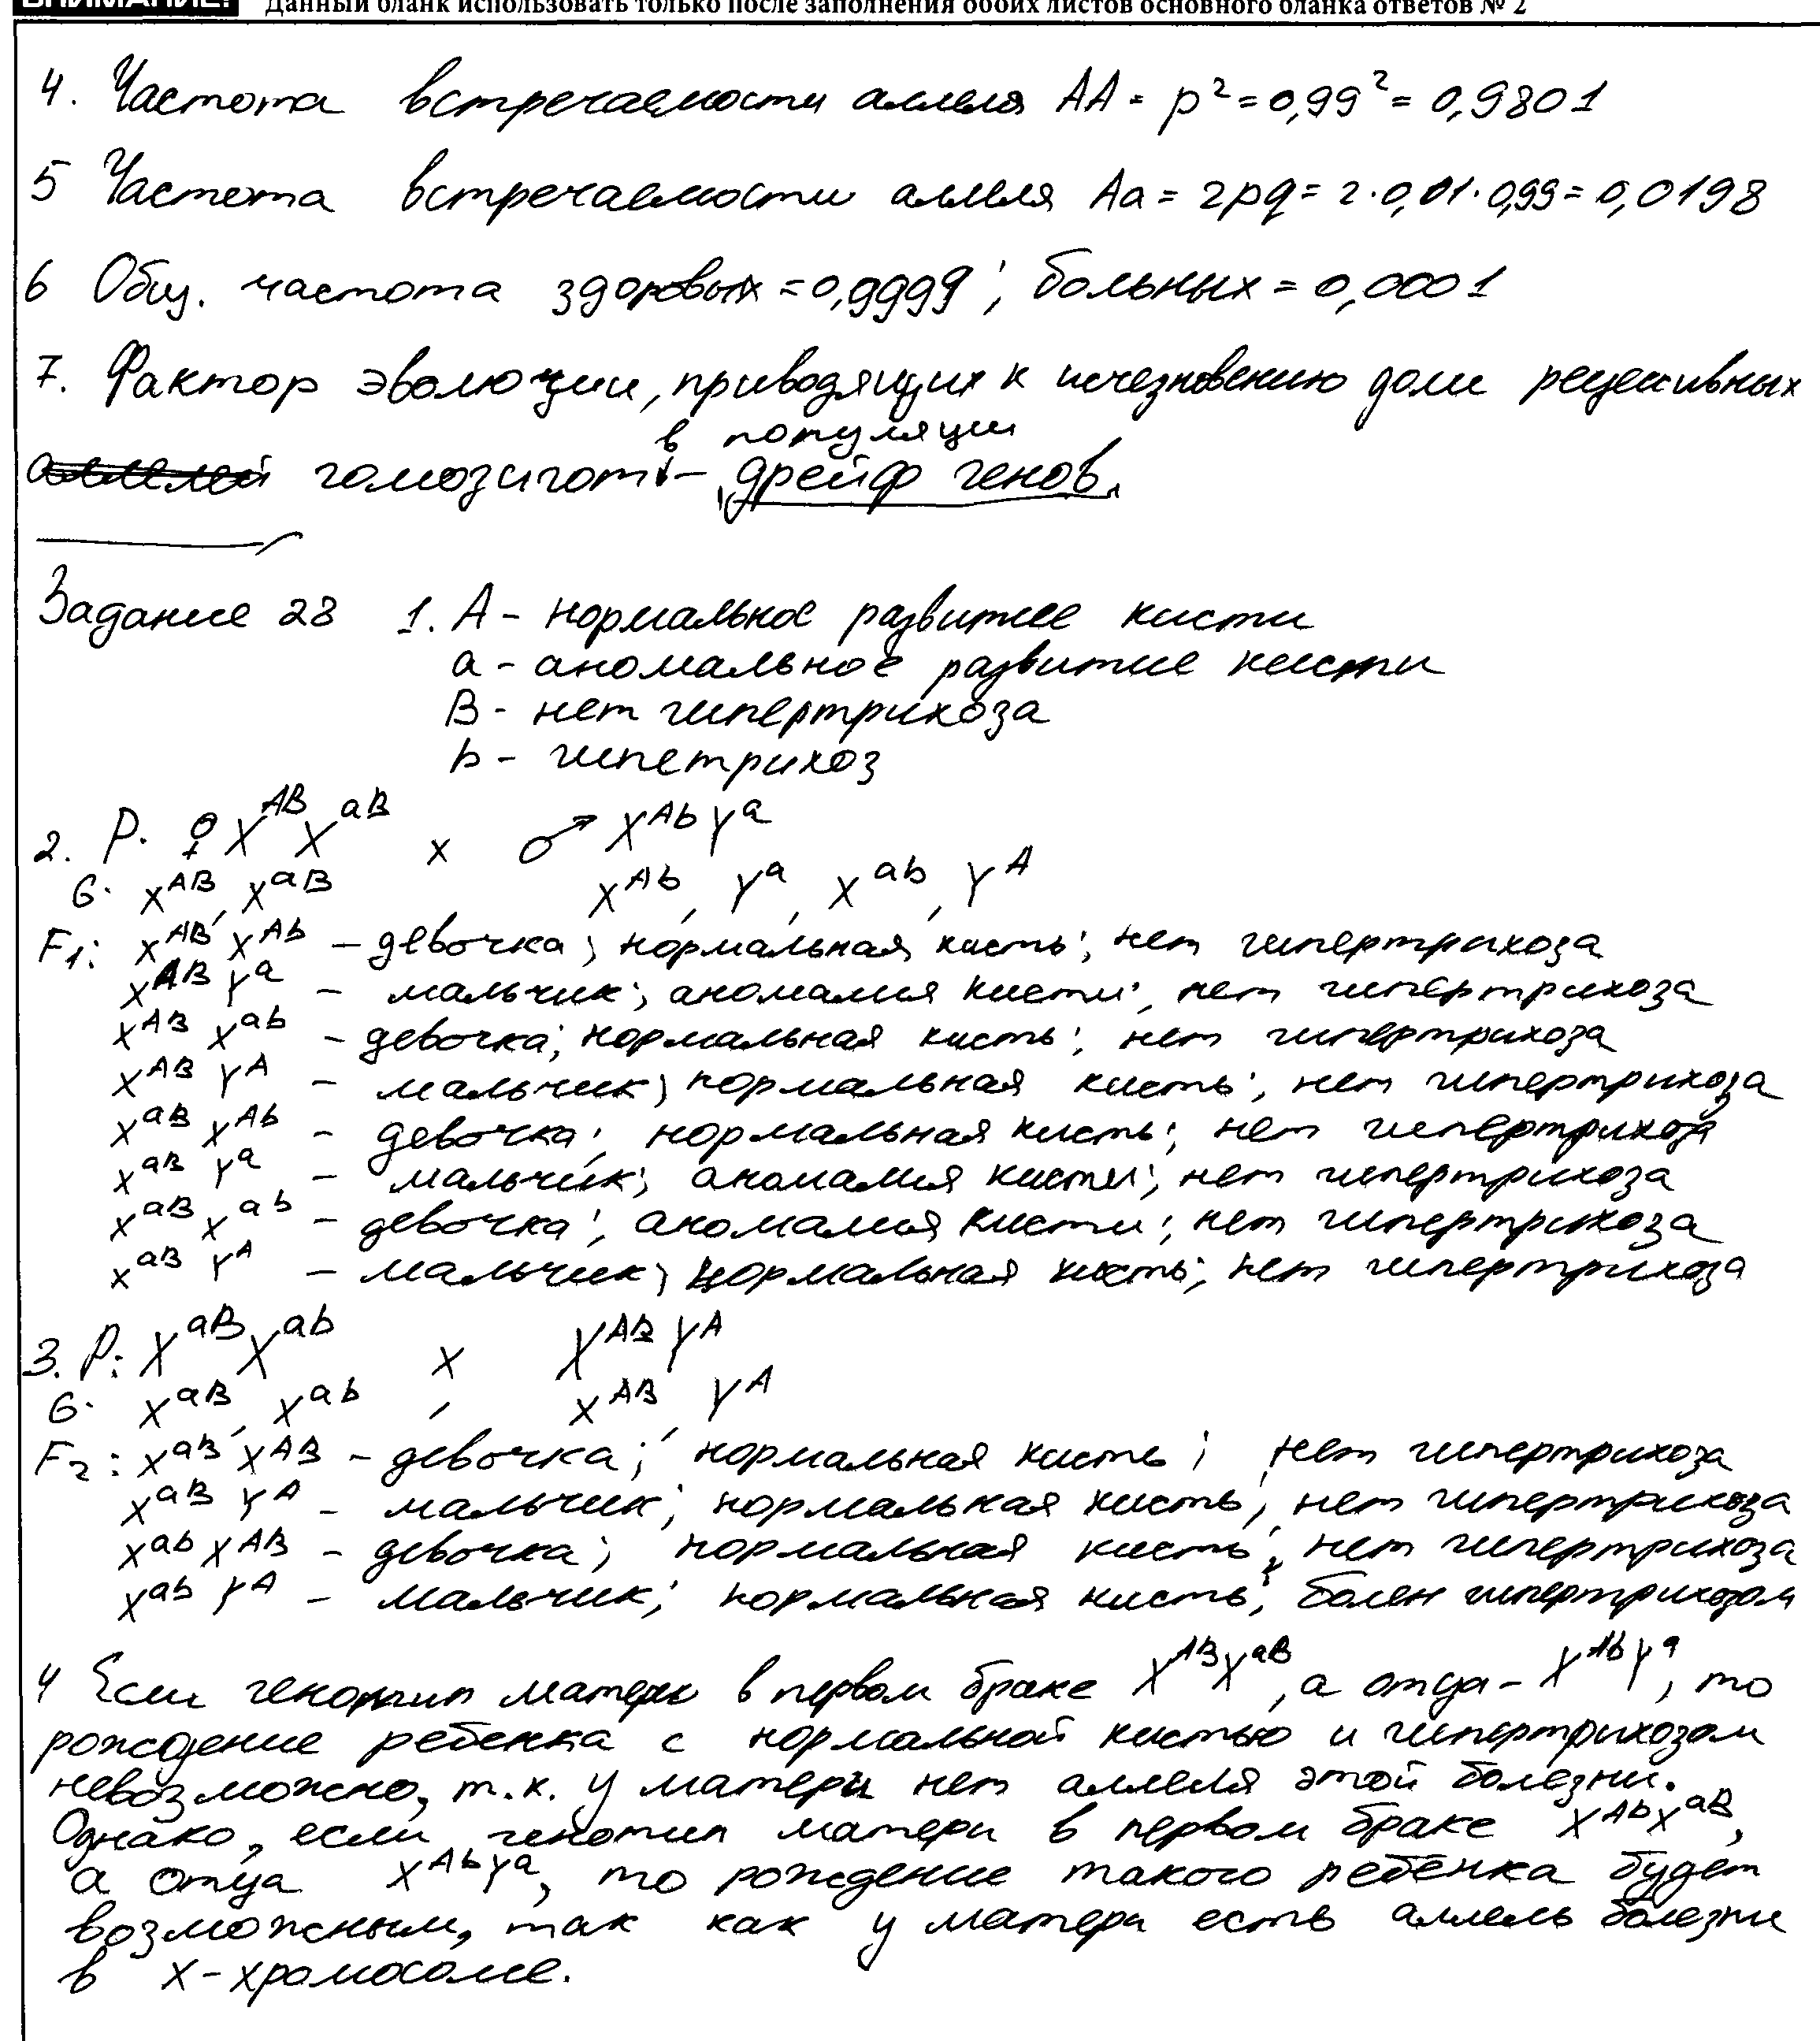 ВНИМАНИЕ! Данный бланк использовать только после заполнения обоих листов основного бланка ответов № 2
4. Частота встречаемости аллеля AA = p² = 0,99² = 0,9801
5 Частота встречаемости аллеля Aa = 2pq = 2·0,01·0,99 = 0,0198
6 Общ. частота здоровых = 0,9999; больных = 0,0001
7. Фактор эволюции, приводящих к исчезновению доли рецессивных
в популяции
аллелей гомозигот – дрейф генов.
Задание 28 1. A – нормальное развитие кисти
a – аномальное развитие кисти
B – нет гипертрихоза
b – гипетрихоз
2. P. ♀ X^AB X^aB x ♂ X^Ab Y^a
G. X^AB, X^aB X^Ab, Y^a, X^ab, Y^A
F1: X^AB X^Ab – девочка; нормальная кисть; нет гипертрихоза
X^AB Y^a – мальчик; аномалия кисти; нет гипертрихоза
X^AB X^ab – девочка; нормальная кисть; нет гипертрихоза
X^AB Y^A – мальчик; нормальная кисть; нет гипертрихоза
X^aB X^Ab – девочка; нормальная кисть; нет гипертрихоза
X^aB Y^a – мальчик; аномалия кисти; нет гипертрихоза
X^aB X^ab – девочка; аномалия кисти; нет гипертрихоза
X^aB Y^A – мальчик; нормальная кисть; нет гипертрихоза
3. P: X^aB X^ab x X^AB Y^A
G. X^aB, X^ab, X^AB, Y^A
F2: X^aB X^AB – девочка; нормальная кисть; нет гипертрихоза
X^aB Y^A – мальчик; нормальная кисть; нет гипертрихоза
X^ab X^AB – девочка; нормальная кисть; нет гипертрихоза
X^ab Y^A – мальчик; нормальная кисть; болен гипертрихозом
4 Если генотип матери в первом браке X^AB X^aB, а отца – X^Ab Y^a, то
рождение ребенка с нормальной кистью и гипертрихозом
невозможно, т.к. у матери нет аллеля этой болезни.
Однако, если генотип матери в первом браке X^Ab X^aB,
а отца X^Ab Y^a, то рождение такого ребенка будет
возможным, так как у матери есть аллель болезни
в X-хромосоме.